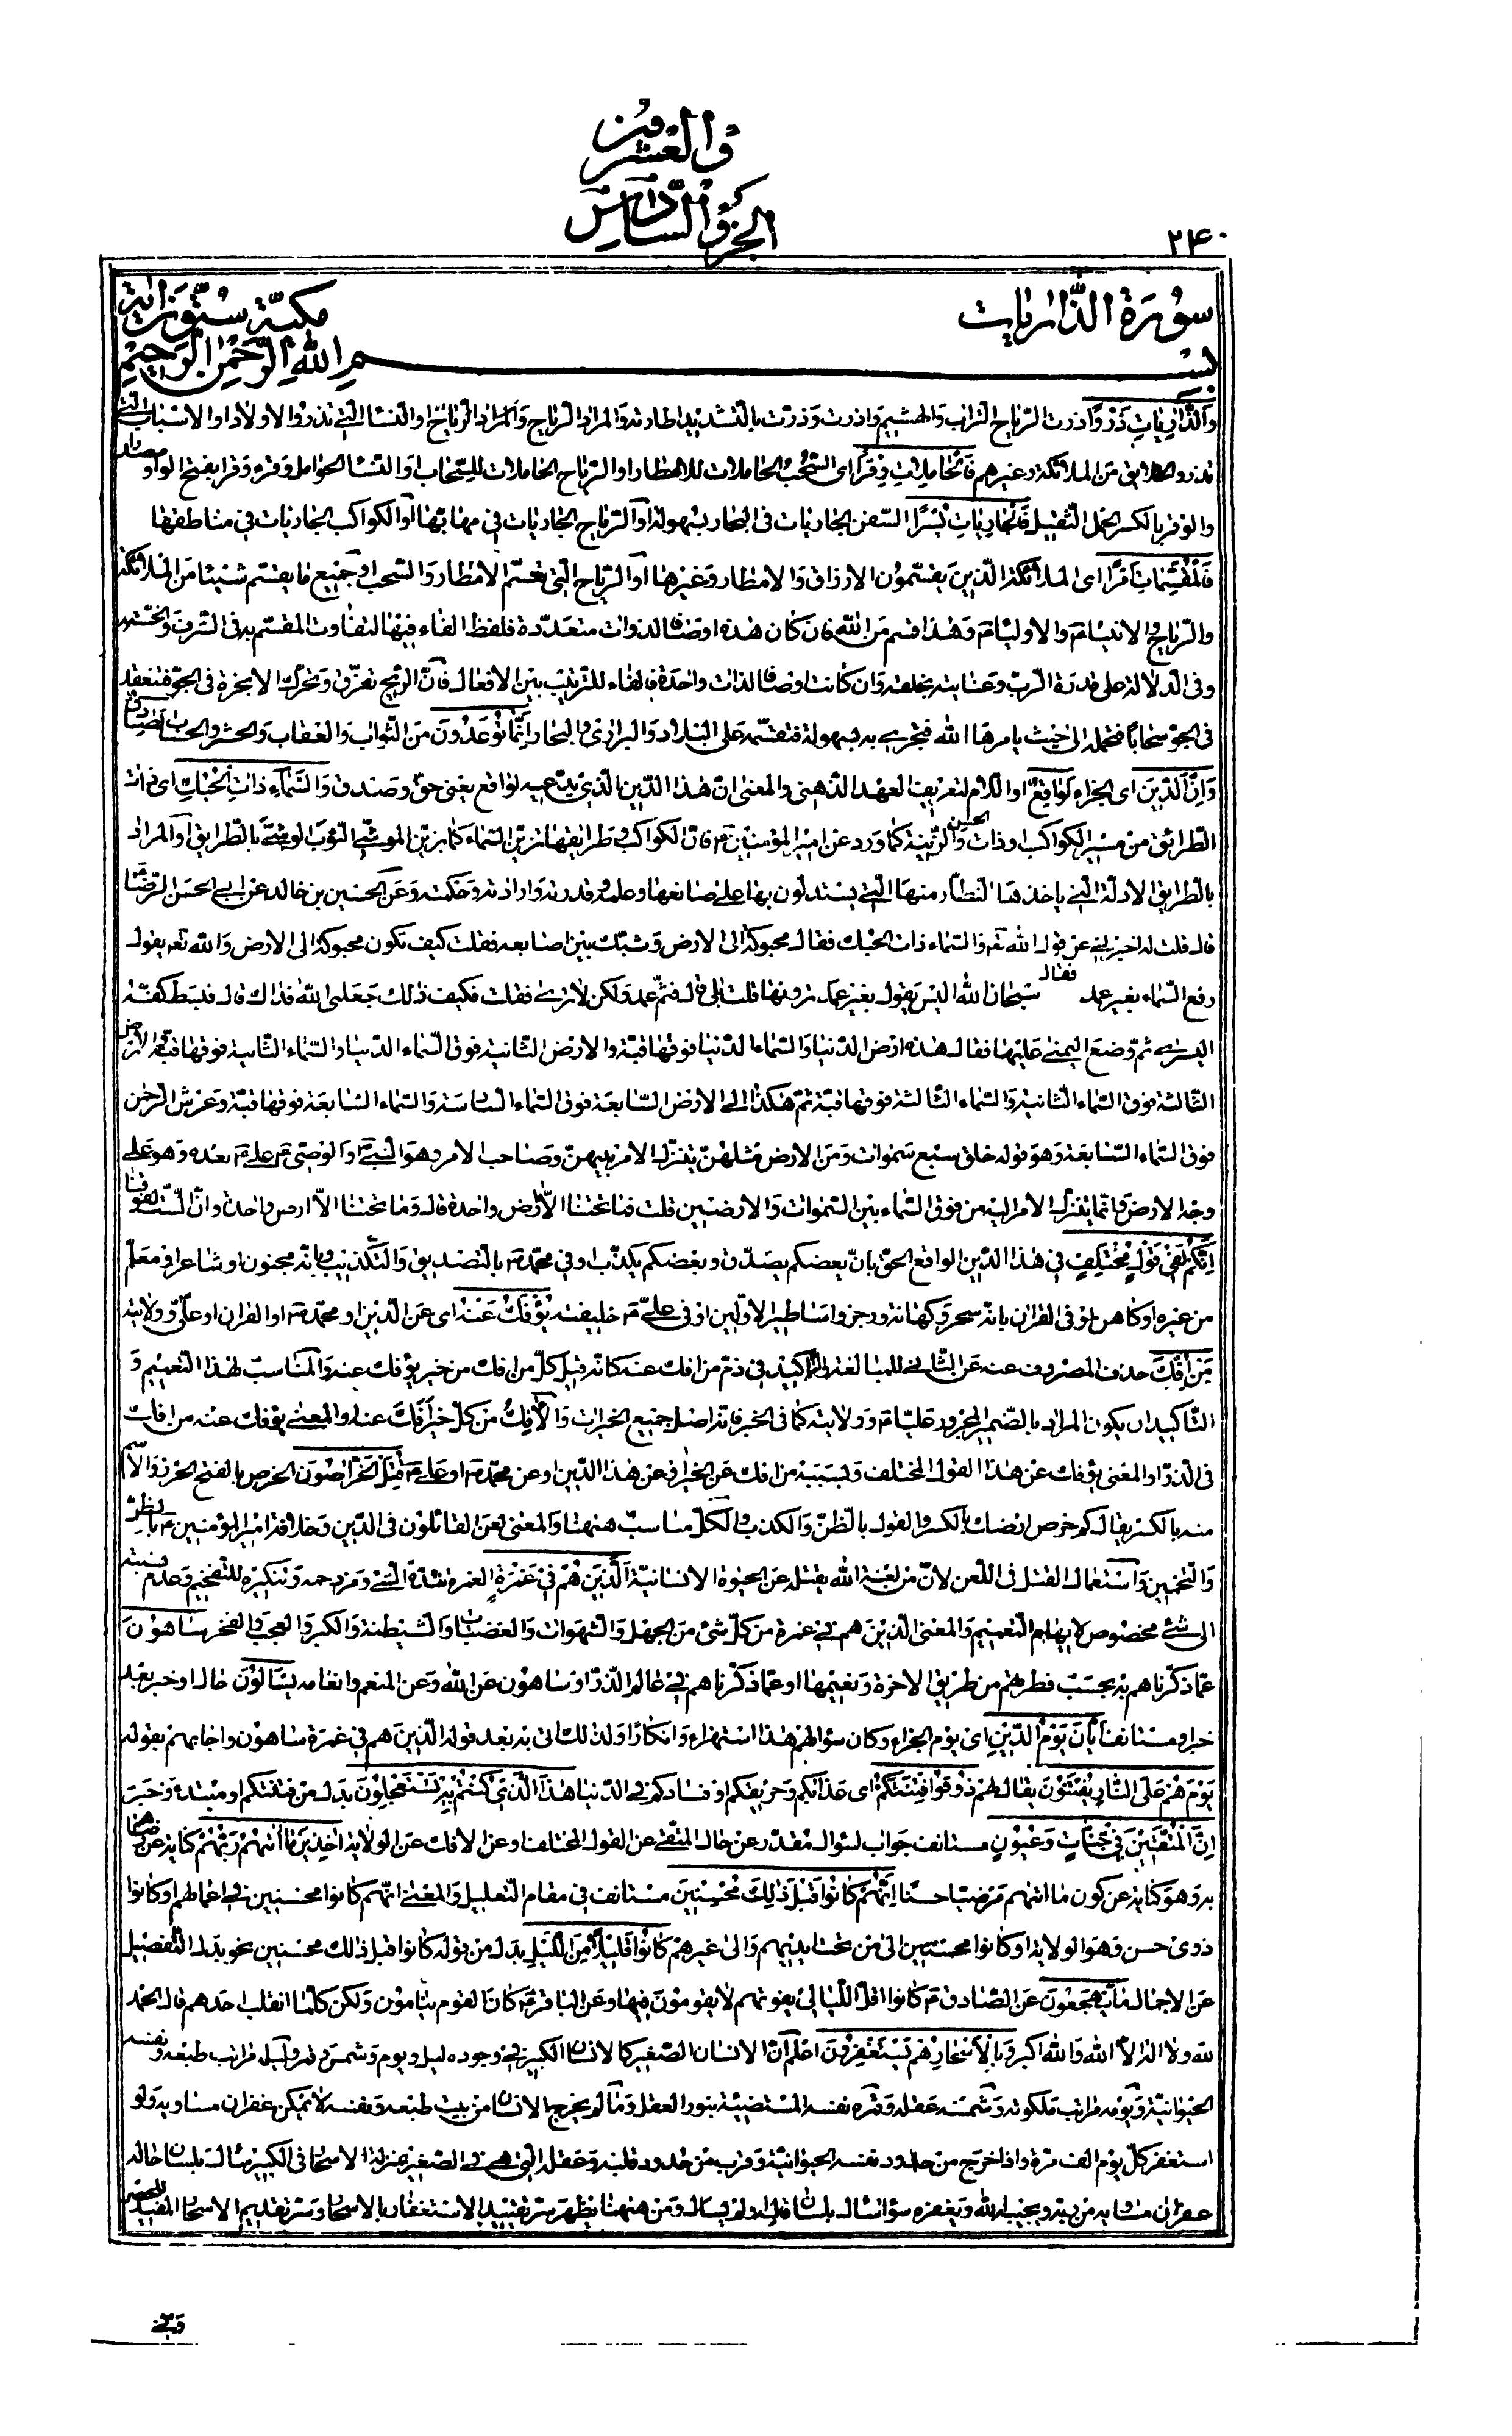 الجزؤ السادس
والعشرون
۲۴۰
سورة الذاريات
مكية ستون اية
بسم الله الرحمن الرحيم
والذاريات ذروا ذرت الرياح التراب والهشيم واذرت وذرت بالتشديد اطارته والمراد الرياح او النساء التى تذروا الاولاد او الاسباب التى
تذرو الخلايق من الملائكة وغيرهم فالحاملات وقرا اى السحب الحاملات للامطار او الرياح الحاملات للسحاب او النساء الحوامل وقره وقرا بفتح الواو مصدر
والوقر بالكسر الحمل الثقيل فالجاريات يسرا السفن الجاريات فى البحار بسهولة او الرياح الجاريات فى مهابها او الكواكب الجاريات فى مناطقها
فالمقسمات امرا اى الملائكة الذين يقسمون الارزاق والامطار وغيرها او الرياح التى تقسم الامطار والسحب او جميع ما يقسم شيئا من الملائكة
والرياح والانبياء والاولياء وهذا قسم من الله فان كان هذه اوصافا لذوات متعددة فلفظ الفاء فيها لتفاوت المقسم به فى الشرف والخسة
وفى الدلالة على قدرة الرب وعنايته بخلقه وان كانت اوصافا لذات واحدة فالفاء للترتيب بين الافعال فان الريح تفرق وتحرك الابخرة فى الجو فتنعقد
فى الجو سحابا فتحمله الى حيث يامرها الله فتجرى به بسهولة فتقسمه على البلاد والبرارى والبحار انما توعدون من الثواب والعقاب والحشر والحساب لصادق
وان الدين اى الجزاء لواقع او اللام لتعريف العهد الذهنى والمعنى ان هذا الدين الذى يدعيه لواقع يعنى حق وصدق والسماء ذات الحبك اى ذات
الطرائق من مسير الكواكب او ذات الحسن والزينة كما ورد عن امير المؤمنين فان الكواكب وطرايقها تزين السماء كما يزين الموشى الثوب الموشى بالطرايق او المراد
بالطرايق الادلة التى ياخذها النظار منها التى يستدلون بها على صانعها وعلمه وقدرته وارادته وحكمته وعن الحسين بن خالد عن ابى الحسن الرضا
قال قلت له اخبرنى عن قول الله تع والسماء ذات الحبك فقال محبوكة الى الارض وشبك بين اصابعه فقلت كيف تكون محبوكة الى الارض والله تع يقول
رفع السماء بغير عمد فقال سبحان الله اليس يقول بغير عمد ترونها قلت بلى قال فثم عمد ولكن لا ترى فقلت فكيف ذلك جعلنى الله فداك قال فبسط كفه
اليسرى ثم وضع اليمنى عليها فقال هذه ارض الدنيا والسماء الدنيا فوقها قبة والارض الثانية فوق السماء الدنيا والسماء الثانية فوقها قبة والارض
الثالثة فوق السماء الثانية والسماء الثالثة فوقها قبة ثم هكذا الى الارض السابعة فوق السماء السادسة والسماء السابعة فوقها قبة وعرش الرحمن
فوق السماء السابعة وهو قوله خلق سبع سموات ومن الارض مثلهن يتنزل الامر بينهن وصاحب الامر وهو النبى والوصى على بعده وهو على
وجه الارض وانما يتنزل الامر اليه من فوق السماء بين السموات والارضين قلت فما تحتنا الا ارض واحدة قال وما تحتنا الا ارض واحدة وان الست لفوقنا
انكم لفى قول مختلف فى هذا الدين الواقع الحق بان بعضكم يصدق وبعضكم يكذب او فى محمد بالتصديق والتكذيب وبانه مجنون او شاعر او معلم
من غيره او كاهن او فى القران بانه سحر وكهانة ورجز واساطير الاولين او فى على خليفته يؤفك عنه اى عن الدين او محمد او القران او على وولايته
من افك حذف المصروف عنه عن الثانى للمبالغة والتاكيد فى ذم من افك عنه كانه قيل كل من افك من خير يؤفك عنه والمناسب لهذا التعميم و
التاكيد ان يكون المراد بالضمير المجرور عليا وولايته كما فى الخبر فانه اصل جميع الخيرات والافك من كل خير افك عنه او المعنى يؤفك عنه من افك
فى الذر او المعنى يؤفك عن هذا القول المختلف وبسببه من افك عن الخير او عن هذا الدين او عن محمد او على قتل الخراصون الخرص بالفتح الحرز والاسم
منه بالكسر يقال كم خرص ارضك بالكسر والقول بالظن والكذب والكل مناسب ههنا والمعنى لعن القائلون فى الدين وخلافة امير المؤمنين بالظن
والتخمين واستعمال القتل فى اللعن لان من لعنه الله يقتله عن الحيوة الانسانية الذين هم فى غمرة الغمرة شدة الشئ ومزدحمه وتنكيره للتفخيم وعدم نسبته
الى شئ مخصوص لايهام التعميم والمعنى الذين هم فى غمرة من كل شئ من الجهل والشهوات والغضبات والشيطنة والكبر والعجب والفخر ساهون
عما ذكرناهم به بحسب فطرهم من طريق الاخرة ونعيمها او عما ذكرناهم فى عالم الذر او ساهون عن الله وعن المنعم وانعامه يسئلون حال او خبر بعد
خبر او مستانف ايان يوم الدين اى يوم الجزاء وكان سؤالهم هذا استهزاء وانكارا ولذلك اتى به بعد قوله الذين هم فى غمرة ساهون واجابهم بقوله
يوم هم على النار يفتنون يقال لهم ذوقوا فتنتكم اى عذابكم وحريقكم او فسادكم فى الدنيا هذا الذى كنتم به تستعجلون بدل من فتنتكم او مبتدء وخبر
ان المتقين فى جنات وعيون مستانف جواب لسؤال مقدر عن حال المتقى عن القول المختلف او عن الافك عن الولاية اخذين ما اتيهم ربهم كناية عن رضاهم
به وهو كناية عن كون ما اتيهم مرضيا حسنا انهم كانوا قبل ذلك محسنين مستانف فى مقام التعليل والمعنى انهم كانوا محسنين فى اعمالهم او كانوا
ذوى حسن وهو الولاية او كانوا محسنين الى من تحت ايديهم والى غيرهم كانوا قليلا من الليل بدل من قوله كانوا قبل ذلك محسنين نحو بدل التفصيل
عن الاجمال ما يهجعون عن الصادق كانوا اقل الليالى يفوتهم لا يقومون فيها وعن الباقر كان القوم ينامون ولكن كلما انقلب احدهم قال الحمد
لله ولا اله الا الله والله اكبر وبالاسحار هم يستغفرون اعلم ان الانسان الصغير كالانسان الكبير فى وجوده ليل ويوم وشمس وقمر وليله مراتب طبعه ونفسه
الحيوانية ويومه مراتب ملكوته وشمسه عقله وقمره نفسه المستضيئة بنور العقل وما لم يخرج الانسان من بيت طبعه ونفسه لا يمكن غفران مساويه ولو
استغفر كل يوم الف مرة واذا خرج من حدود نفسه الحيوانية وقرب من حدود قلبه وعقله التى هى فى الصغير بمنزلة الاسحار فى الكبير سال بلسان حاله
غفران مساويه من ربه ويجيبه الله ويغفره سواء سال بلسان قاله او لم يسال ومن ههنا يظهر سر تقييد الاستغفار بالاسحار وسر تقديم الاسحار المفيد للحصر
وفى